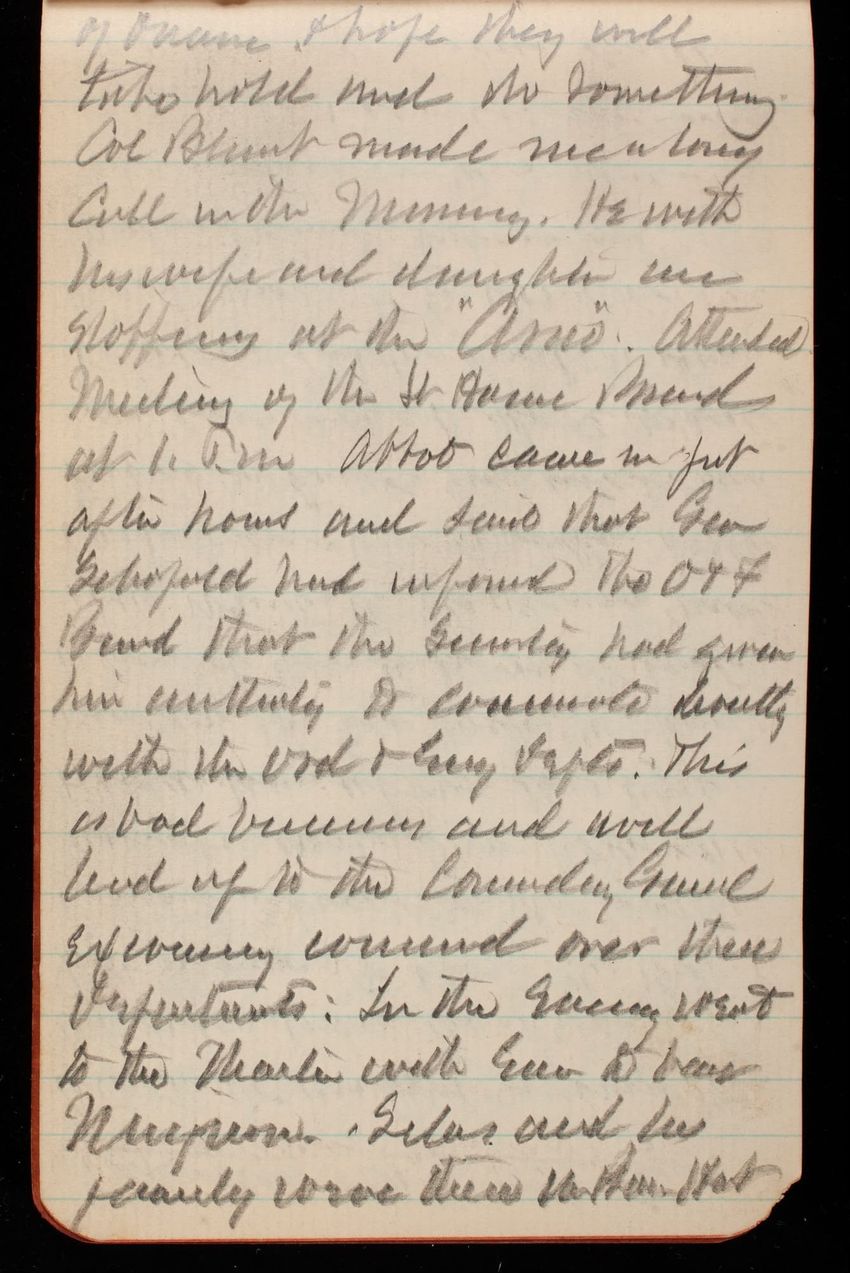 & hope they will
take hold and do something
Col Blunt made me a long
Call in the Morning. He with
his wife and daughter are
stopping at the "Arno". Attended
Meeting of the St. Home Board
at 1. P.m Abbot came in just
after hours and said that Gen
Schofield had informed the O & F
Board that the Secretary had given
him authority to communicate directly
with the Ord & Eng Depts. This
is bad business and will
lead up to the Commanding General
Exercising command over these
Departments: In the Evening went
to the Theatre with to hear
and his
family were there in